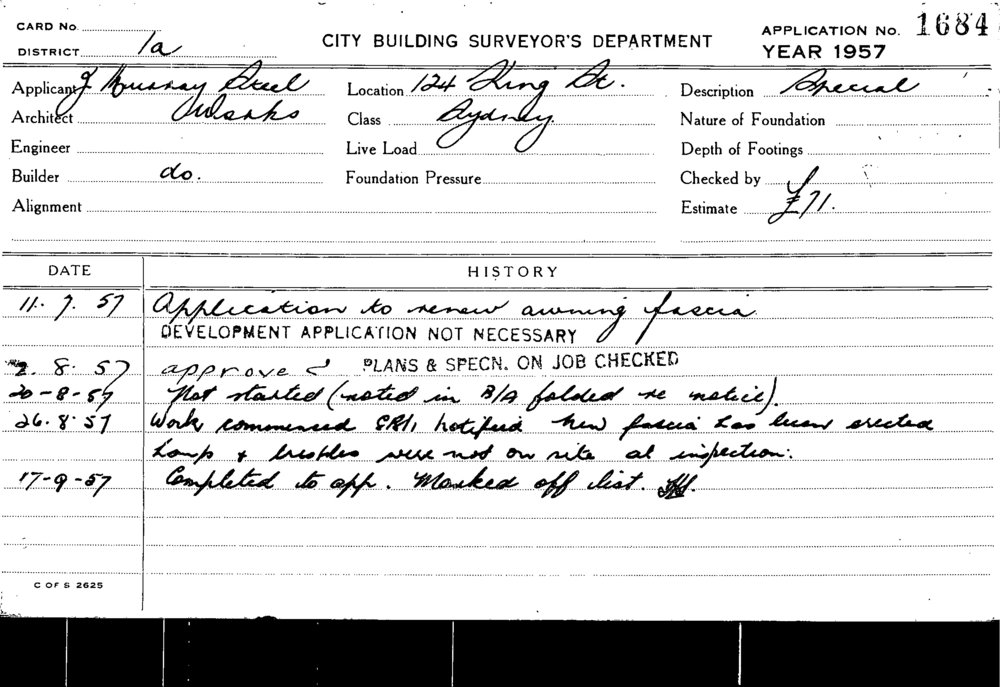 CARD No.
DISTRICT 1a
CITY BUILDING SURVEYOR'S DEPARTMENT
APPLICATION No. 1684
YEAR 1957
Applicant J Murray Steel
Location 124 King St.
Description Special
Architect Works
Class Sydney
Nature of Foundation
Engineer
Live Load
Depth of Footings
Builder do.
Foundation Pressure
Checked by
Alignment
Estimate £71.
DATE HISTORY
11. 7. 57 Application to renew awning fascia
DEVELOPMENT APPLICATION NOT NECESSARY
2. 8. 57 approved PLANS & SPECN. ON JOB CHECKED
20-8-57 Not started (noted in B/A folded re notice).
26.8.57 Work commenced notified New fascia has been erected
were not on site at inspection.
17-9-57 Completed to app. Marked off list.
C OF S 2625